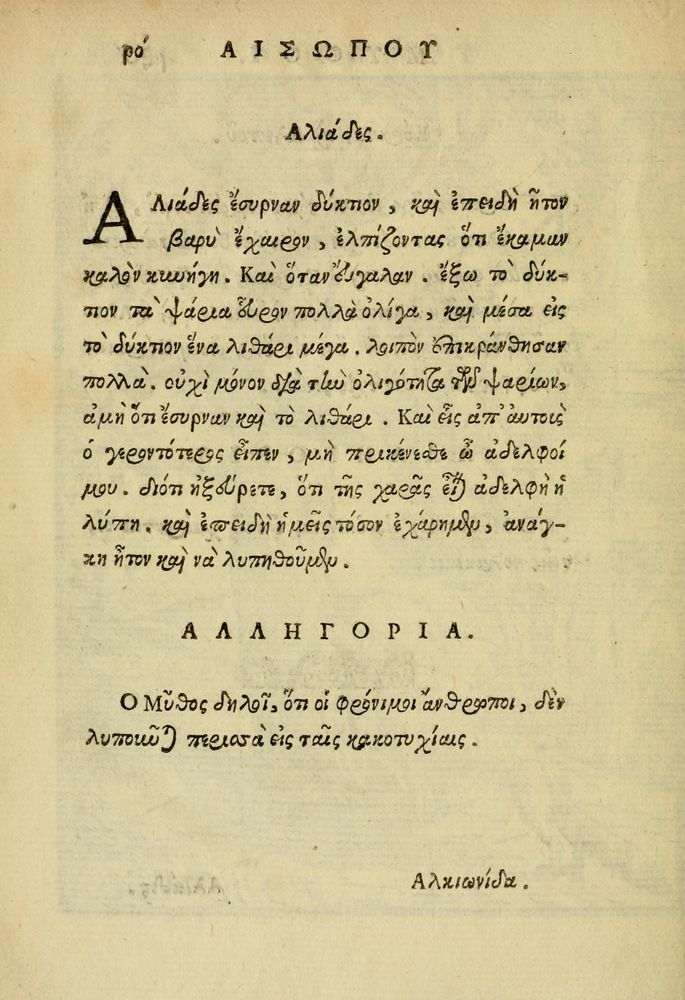 ρό ΑΙΣΩΠΟΥ
Αλιάδες.
ΑΛιάδες ἔσυρναν δύκτιον, καὶ ἐπειδὴ ἦτον
βαρὺ ἔχαιρον, ἐλπίζοντας ὅτι ἔκαμαν
καλὸν κυνήγη. Καὶ ὅταν ἔυγαλαν. ἔξω τὸ δύκ-
τιον τὰ ψάρια ἧυρον πολλὰ ὀλίγα, καὶ μέσα εἰς
τὸ δύκτιον ἕνα λιθάρι μέγα. λοιπὸν ἐπικράνθησαν
πολλὰ. οὐχὶ μόνον διὰ τὴν ὀλιγότητα τῶν ψαρίων,
ἀμὴ ὅτι ἔσυρναν καὶ τὸ λιθάρι. Καὶ εἷς ἀπ' ἀυτοὺς
ὁ γεροντότερος εἶπεν, μὴ πρικένεσθε ὦ ἀδελφοί
μου. διότι ἠξεύρετε, ὅτι τῆς χαρᾶς εἶναι ἀδελφὴ ἡ
λύπη. καὶ ἐπειδὴ ἡμεῖς τόσον ἐχάρημεν, ἀνάγ-
κη ἦτον καὶ νὰ λυπηθοῦμεν.
ΑΛΛΗΓΟΡΙΑ.
Ο Μῦθος δηλοῖ, ὅτι οἱ φρόνιμοι ἄνθρωποι, δὲν
λυποιῶνται περισσὰ εἰς ταῖς κακοτυχίαις.
Αλκιωνίδα.